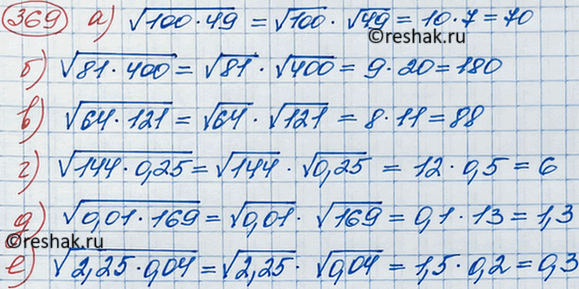 369 а) √100·49 = √100 · √49 = 10·7 = 70
©reshak.ru
б) √81·400 = √81 · √400 = 9·20 = 180
в) √64·121 = √64 · √121 = 8·11 = 88
г) √144·0,25 = √144 · √0,25 = 12·0,5 = 6
д) √0,01·169 = √0,01 · √169 = 0,1·13 = 1,3
©reshak.ru
е) √2,25·0,04 = √2,25 · √0,04 = 1,5·0,2 = 0,3